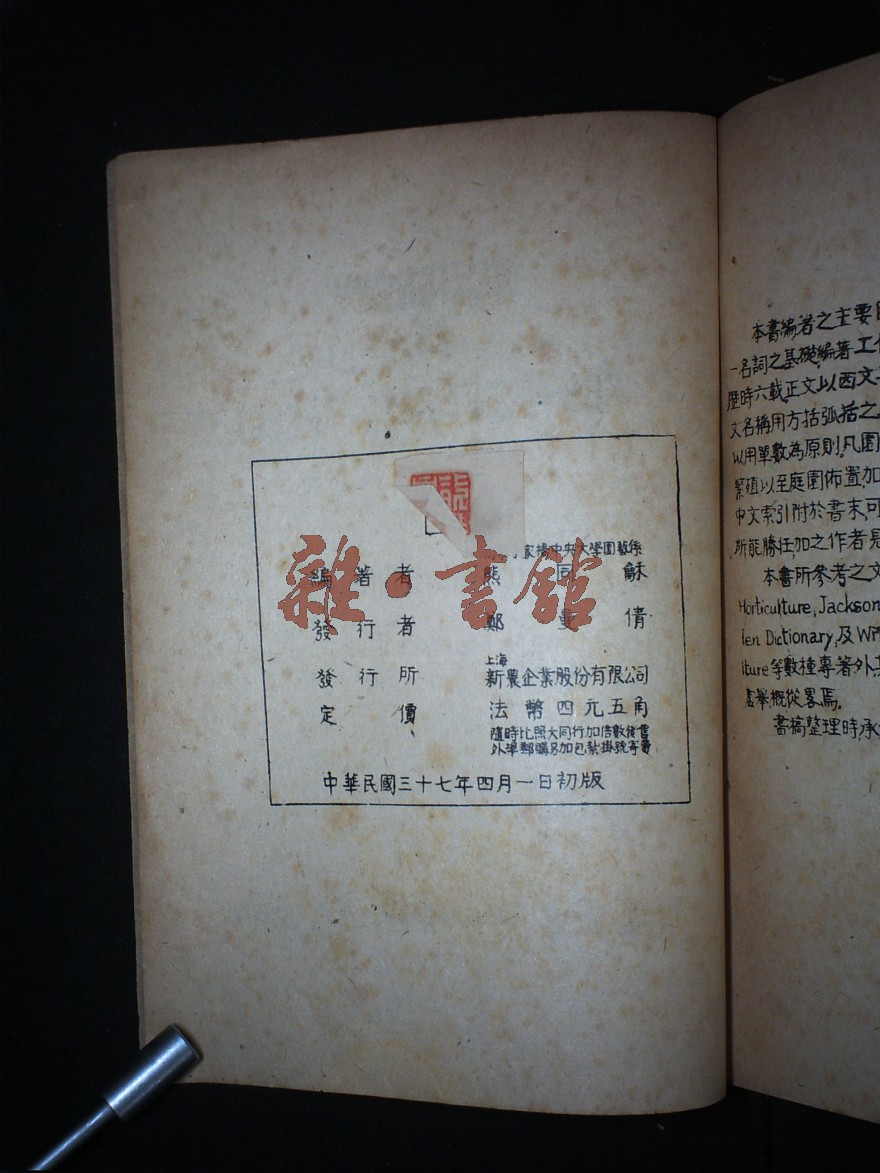 京橋中央大學園藝係
編著者 熊同龢
發行者 鄭量倩
上海
發行所 新農企業股份有限公司
定價 法幣四元五角
隨時比照大同行加倍數發售
外埠郵購另加包紮掛號寄費
中華民國三十七年四月一日初版
雜·書館
本書編著之主要
一名詞之基礎編著工
歷時六載正文以西文
文名稱用方括弧括之
以用單數為原則凡園
繁殖以至庭園佈置加
中文索引附於書末可
所能勝任加之作者
本書所參考之文
Horticulture, Jackson
len Dictionary, 及 Wi
iture 等數種專著外其
盡舉概從畧焉。
書稿整理時承